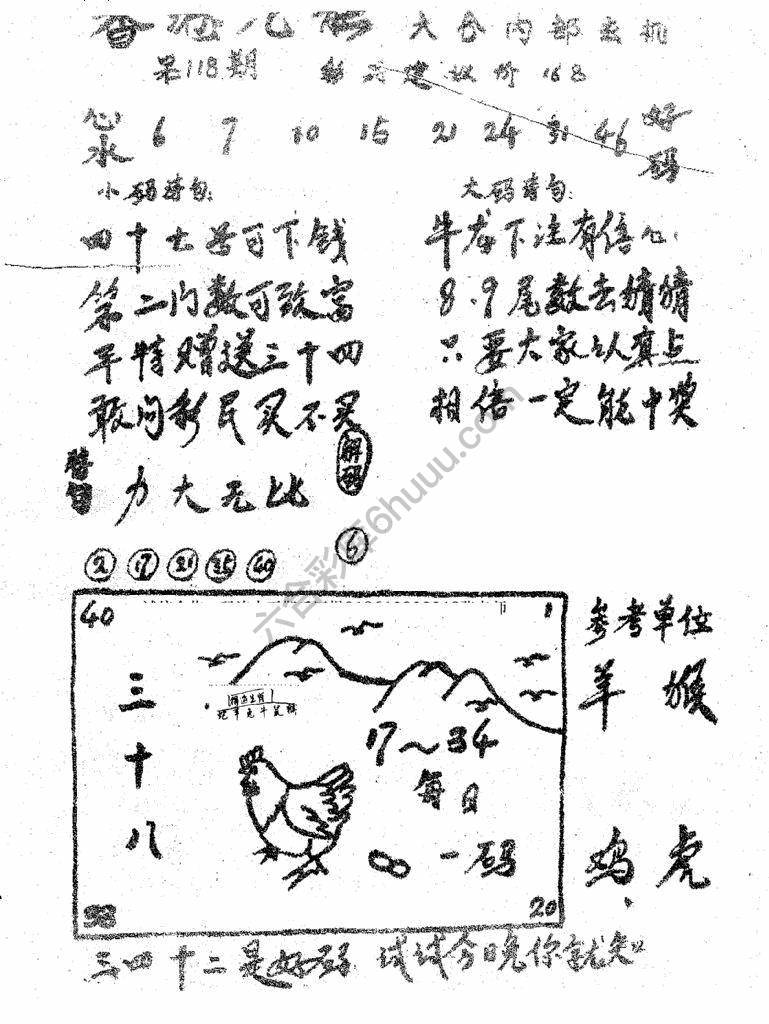 六合内部玄机
第118期 彩民建议价168
心水 6 7 10 15 21 24 31 46 好码
小码诗句:
四十七号可下钱
第二门数可致富
平特赠送三十四
敢问彩民买不买
大码诗句:
牛龙下注有信心
8.9尾数去猜猜
只要大家认真点
相信一定能中奖
力大无比
解码
2 17 21 35 40
6
六合彩库6huuu.com
40
三十八
17～34
每日
一码
38
20
参考单位
羊 猴
鸡 虎
三四十二是好码 试试今晚你就知